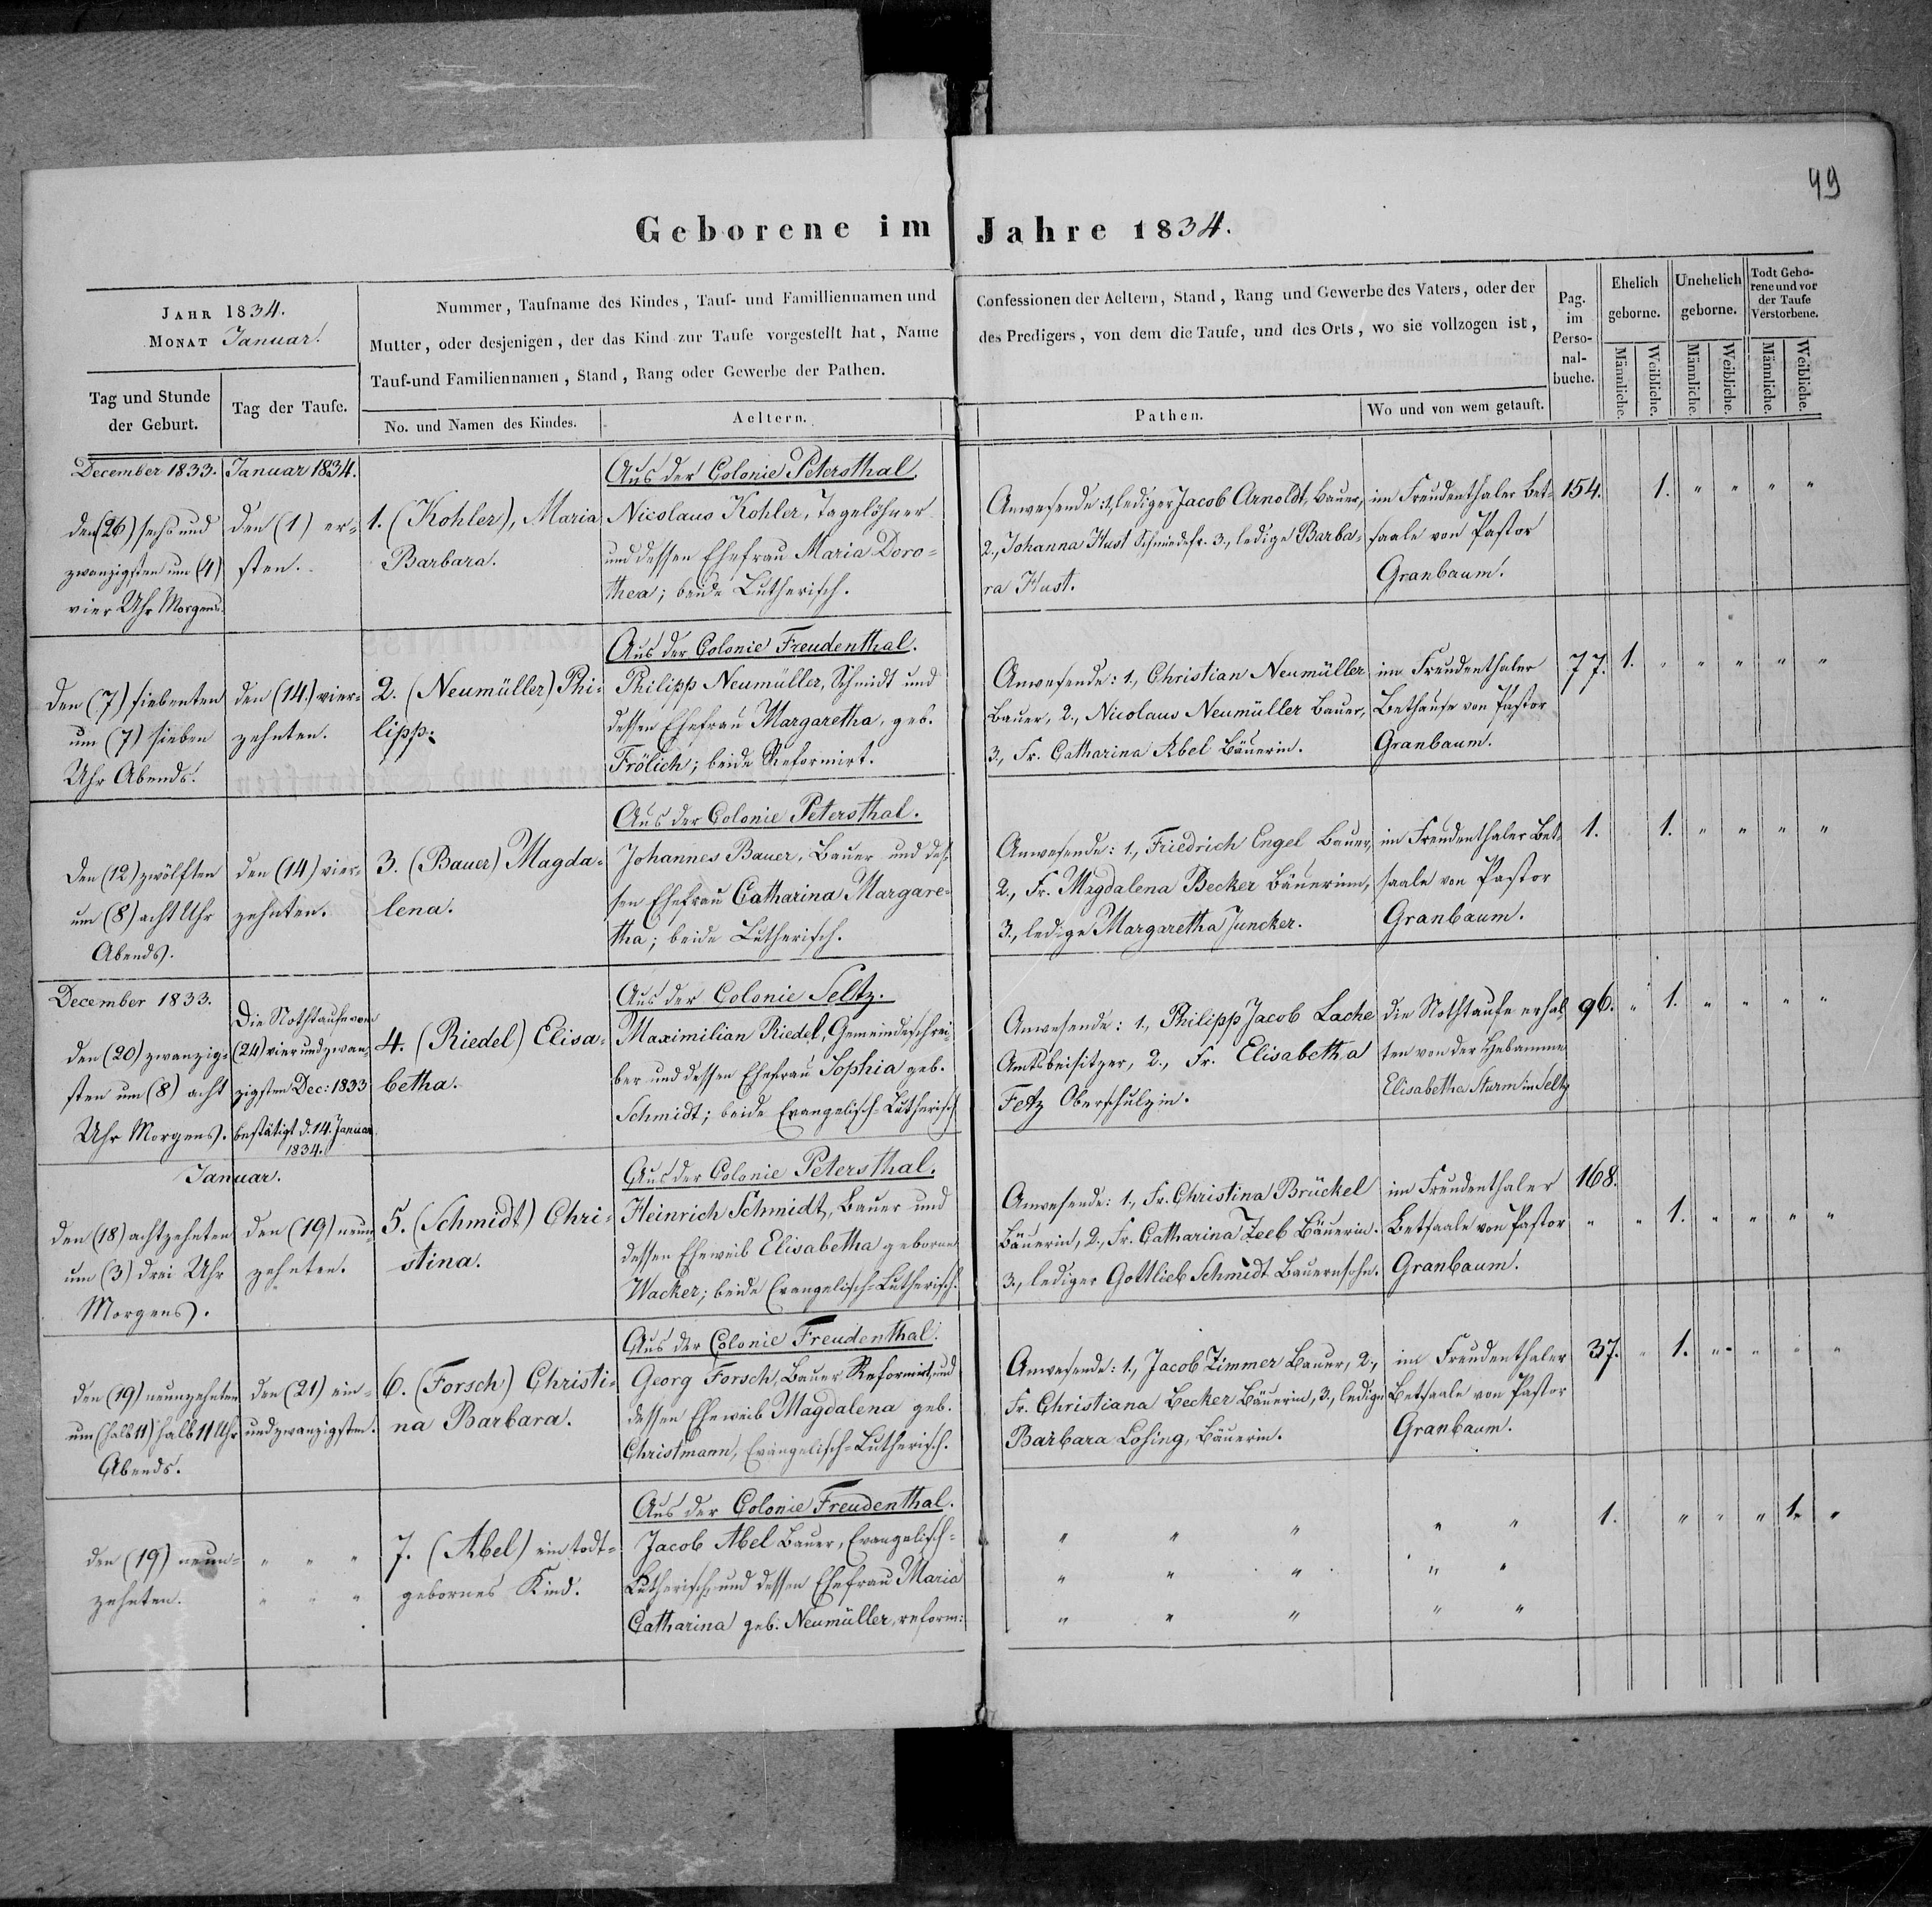 49
Geborene im Jahre 1834.
JAHR 1834.
MONAT Januar.
Tag und Stunde
der Geburt.
Tag der Taufe.
Nummer, Taufname des Kindes, Tauf- und Familliennamen und
Mutter, oder desjenigen, der das Kind zur Taufe vorgestellt hat, Name
Tauf-und Familiennamen, Stand, Rang oder Gewerbe der Pathen.
No. und Namen des Kindes.
Aeltern.
Confessionen der Aeltern, Stand, Rang und Gewerbe des Vaters, oder der
des Predigers, von dem die Taufe, und des Orts, wo sie vollzogen ist,
Pathen.
Wo und von wem getauft.
Pag.
im
Perso-
nal-
buche.
Ehelich
geborne.
Unehelich
geborne.
Todt Gebo-
rene und vor
der Taufe
Verstorbene.
Männliche.
Weibliche.
Männliche.
Weibliche.
Männliche.
Weibliche.
December 1833.
den (26) sechs und
zwanzigsten um (4)
vier Uhr Morgens.
Januar 1834.
den (1) er-
sten.
1. (Kohler), Maria
Barbara.
Aus der Colonie Petersthal.
Nicolaus Kohler, Tagelöhner
und dessen Ehefrau Maria Doro-
thea; beide Lutherisch.
Anwesende: 1, lediger Jacob Arnoldt, Bauer,
2., Johanna Hust Schmiedsfr. 3., ledige Barba-
ra Hust.
im Freudenthaler Bet-
saale von Pastor
Granbaum.
154. 1. " " " "
den (7) siebenten
um (7) sieben
Uhr Abends.
den (14.) vier-
zehnten.
2. (Neumüller) Phi-
lipp.
Aus der Colonie Freudenthal.
Philipp Neumüller, Schmidt und
dessen Ehefrau Margaretha, geb.
Frölich; beide Reformirt.
Anwesende: 1., Christian Neumüller
Bauer, 2., Nicolaus Neumüller Bauer,
3., Fr. Catharina Abel Bäuerin.
im Freudenthaler
Bethause von Pastor
Granbaum.
77. 1. " " " " "
den (12) zwölften
um (8) acht Uhr
Abends.
den (14) vier-
zehnten.
3. (Bauer) Magda-
lena.
Aus der Colonie Petersthal.
Johannes Bauer, Bauer und des-
sen Ehefrau Catharina Margare-
tha; beide Lutherisch.
Anwesende: 1., Friedrich Engel Bauer,
2., Fr. Magdalena Becker Bäuerinn,
3., ledige Margaretha Juncker.
im Freudenthaler Bet-
saale von Pastor
Granbaum.
1. 1. " " " "
December 1833.
den (20) zwanzig-
sten um (8) acht
Uhr Morgens.
Die Nothtaufe vom
(24) vier und zwan-
zigsten Dec: 1833
bestätigt d. 14. Januar
1834.
4. (Riedel) Elisa-
betha.
Aus der Colonie Seltz.
Maximilian Riedel, Gemeindeschrei-
ber und dessen Ehefrau Sophia geb.
Schmidt; beide Evangelisch-Lutherisch
Anwesende: 1., Philipp Jacob Lache
Amtsbeisitzer, 2., Fr. Elisabetha
Fetz Oberschulzin.
die Nothtaufe erhal-
ten von der Hebamme
Elisabetha Sturm in Seltz
96. " 1. " " " "
Januar.
den (18) achtzehnten
um (3) drei Uhr
Morgens.
den (19) neun-
zehnten.
5. (Schmidt) Chri-
stina.
Aus der Colonie Petersthal.
Heinrich Schmidt, Bauer und
dessen Eheweib Elisabetha geborne
Wacker; beide Evangelisch-Lutherisch.
Anwesende: 1., Fr. Christina Brückel
Bäuerin, 2., Fr. Catharina Zeeb Bäuerin.
3., lediger Gottlieb Schmidt Bauernsohn.
im Freudenthaler
Betsaale von Pastor
Granbaum.
168. " " 1. " " " "
den (19) neunzehnten
um (halb 11) halb 11 Uhr
Abends.
den (21) ein-
undzwanzigsten.
6. (Forsch) Christi-
na Barbara.
Aus der Colonie Freudenthal.
Georg Forsch, Bauer Reformirt, und
dessen Eheweib Magdalena geb.
Christmann, Evangelisch-Lutherisch.
Anwesende: 1., Jacob Zimmer Bauer, 2.,
Fr. Christiana Becker Bäuerin, 3., ledige
Barbara Losing, Bäuerin.
im Freudenthaler
Betsaale von Pastor
Granbaum.
37. " 1. " " " "
den (19) neun-
zehnten.
" " "
" " "
7. (Abel) ein todt-
gebornes Kind.
Aus der Colonie Freudenthal.
Jacob Abel Bauer, Evangelisch-
Lutherisch, und dessen Ehefrau Maria
Catharina geb. Neumüller, reform:
" " " " "
" " " " "
" " " " "
1. " " " 1. "